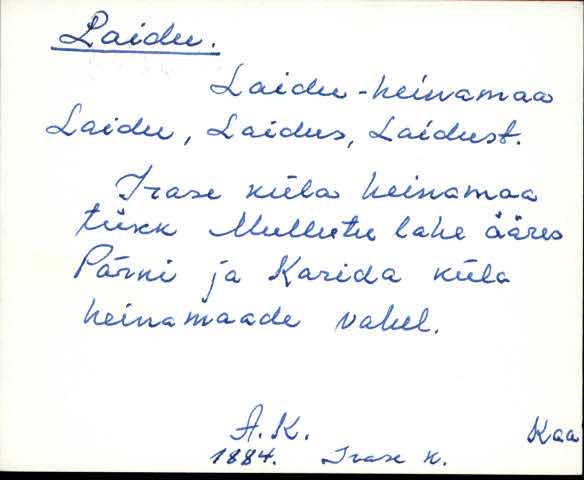 Laidu.
Laidu-heinamaa
Laidu, Laidus, Laidust.
Irase küla heinamaa
tükk Mullutu lahe ääres
Pärni ja Karida küla
heinamaade vahel.
A.K. Kaa
1884. Irase k.